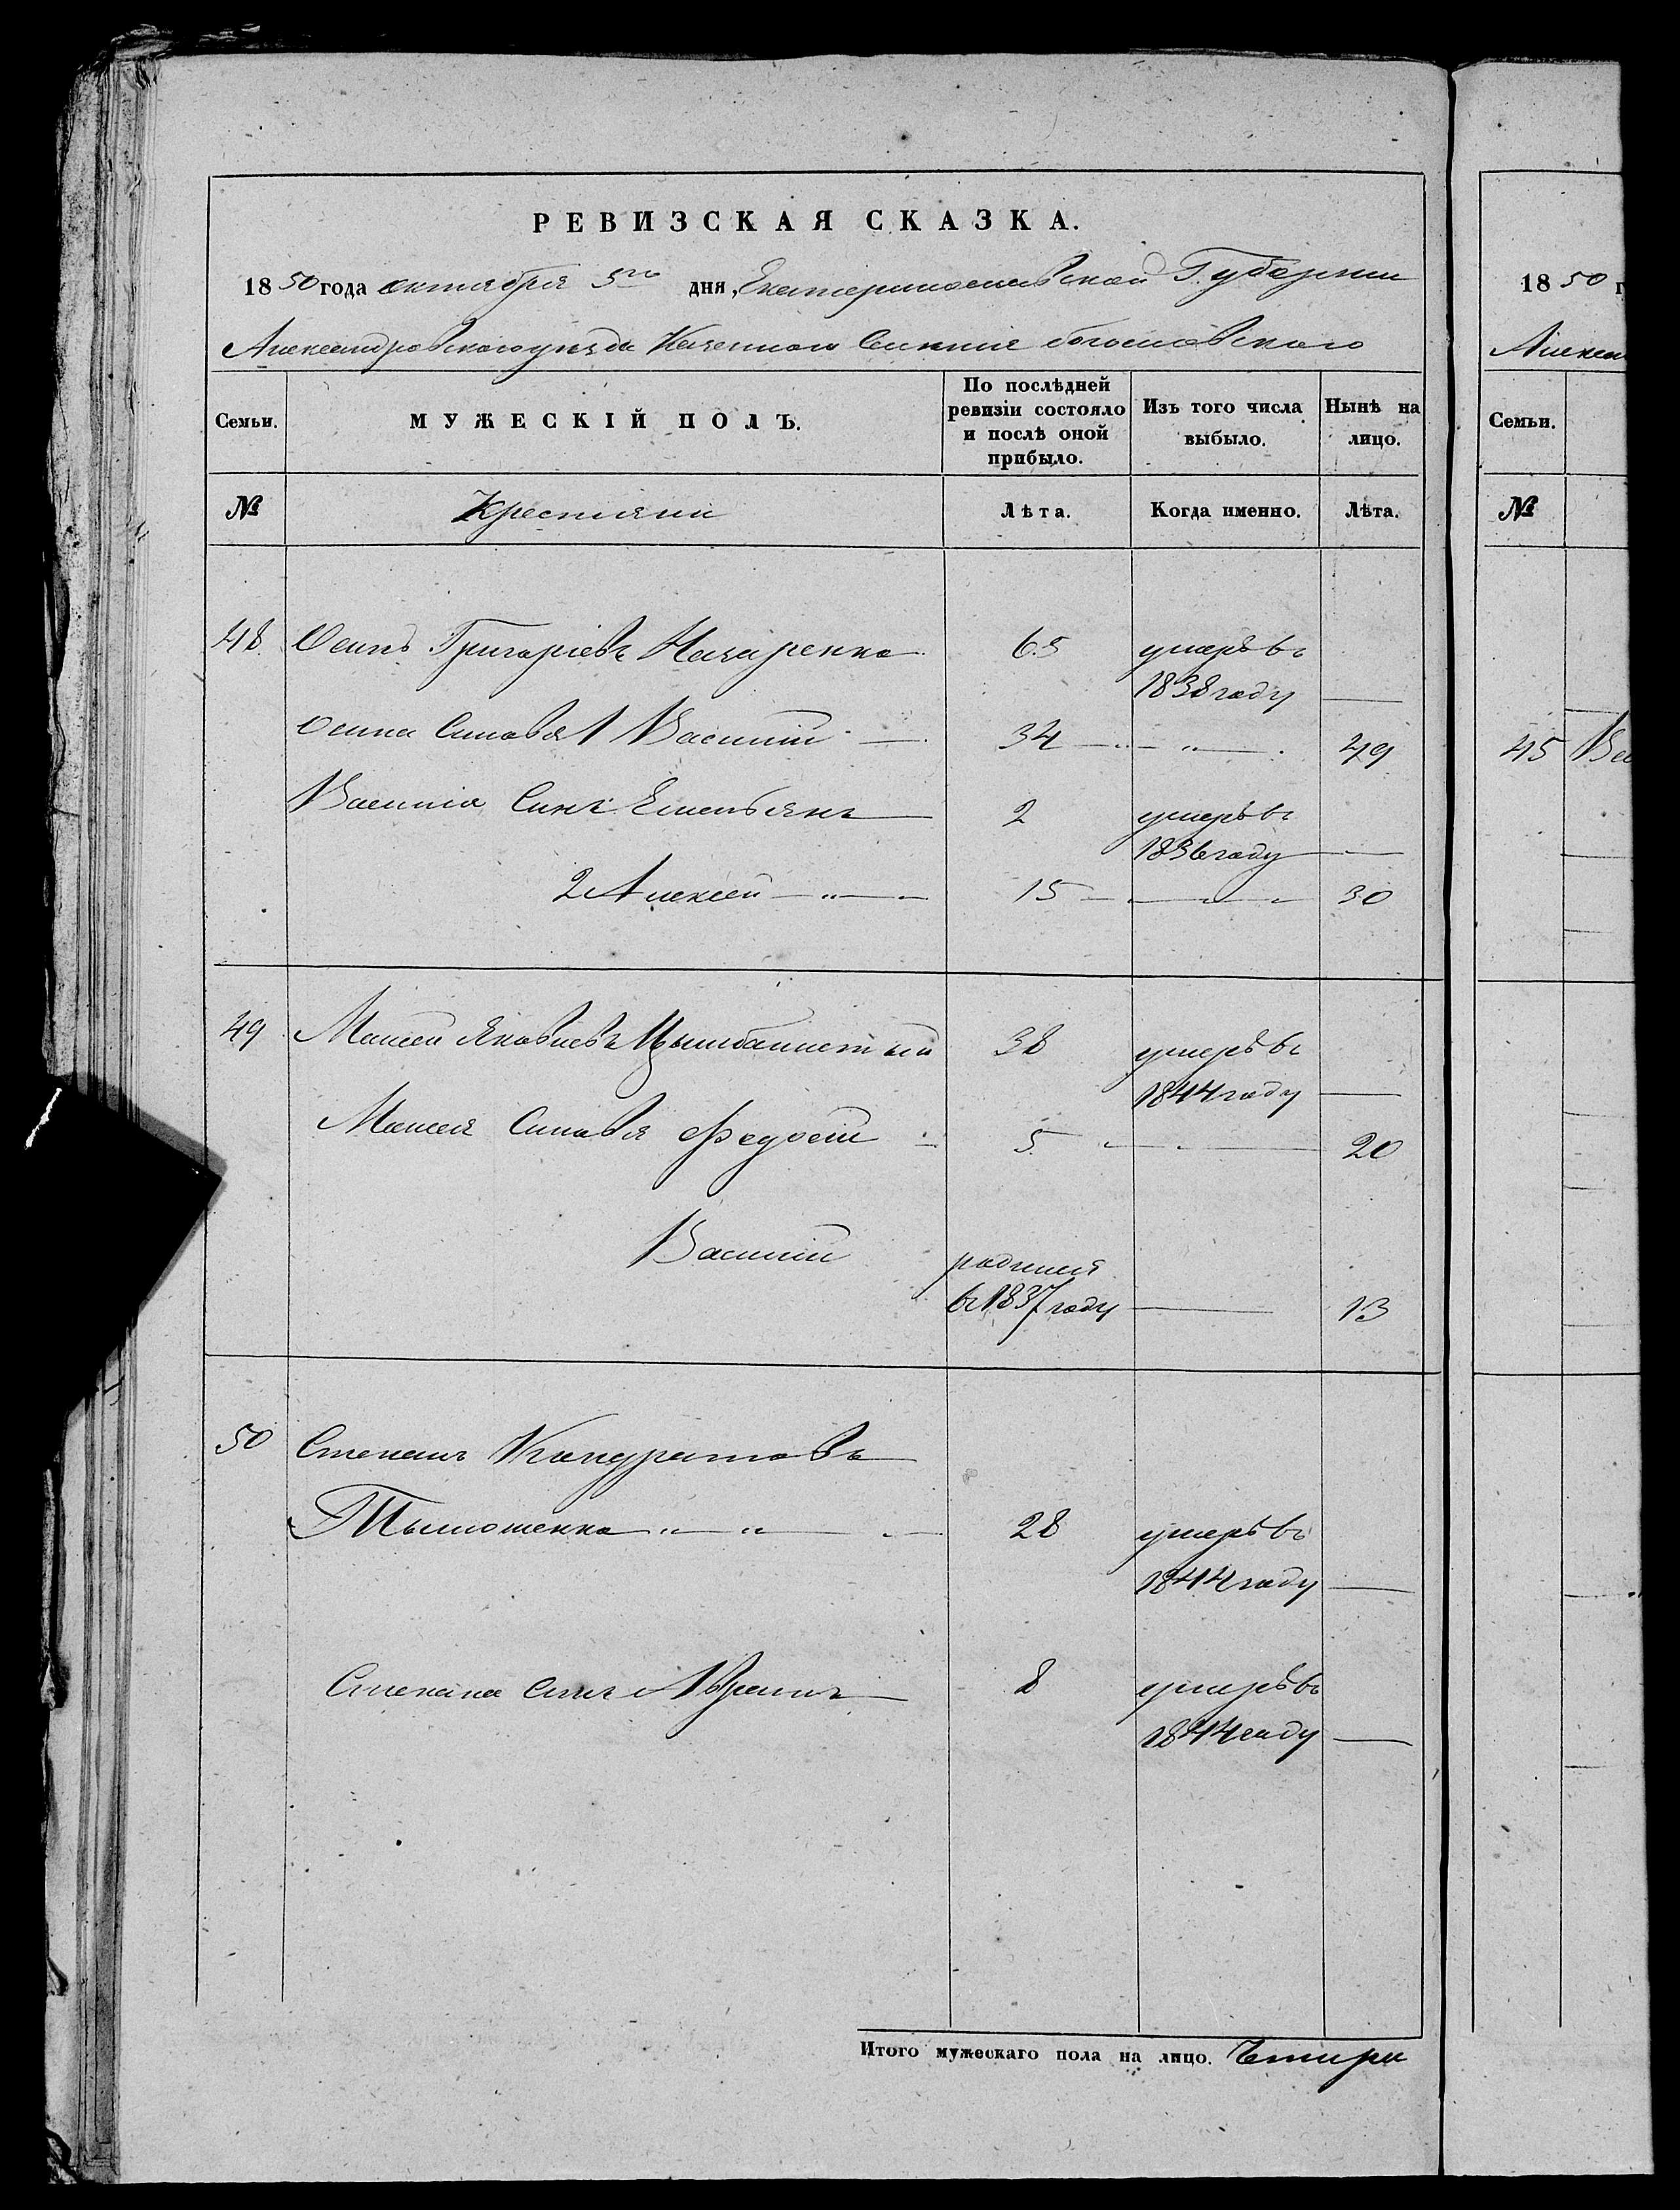 РЕВИЗСКАЯ СКАЗКА.
1850 года октября 5го дня, Екатеринославской Губернии
Александровского уезда Казенного Селения богословского
Семьи. МУЖЕСКІЙ ПОЛЪ. По послѣдней ревизіи состояло и послѣ оной прибыло. Изъ того числа выбыло. Нынѣ на лицо.
№ Крестияни Лѣта. Когда именно. Лѣта.
48. Осипъ Григоріевъ Назаренко 65 умеръ въ
1838 году
Осипа Синовя 1 Василій 34 49
Василія Синъ Емельянъ 2 умеръ въ
1836 году
2 Алексей 15 30
49 Моисей Яковлевъ Цымбалистый 38 умеръ въ
1844 году
Моисея Синовя Федосій 5 20
Василий родился
въ 1837 году 13
50 Степанъ Кондратовъ
Тымошенко 28 умеръ въ
1844 году
Степана Синъ Абрамъ 8 умеръ въ
1844 году
Итого мужескаго пола на лицо. Чтири
1850 г
Алексан
Семьи.
№
45 Вас